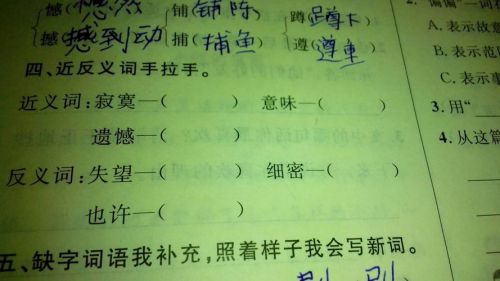 憾( 然) 铺(铺陈) 蹲(蹲下)
撼(撼到动) 捕(捕鱼) 遵(遵重)
四、近反义词手拉手。
近义词:寂寞—( ) 意味—( )
遗憾—( )
反义词:失望—( ) 细密—( )
也许—( )
五、缺字词语我补充,照着样子我会写新词。
2. “偏偏”一词
A. 表示故意
B. 表示范
C. 表示事
3. 用“
4. 从这篇